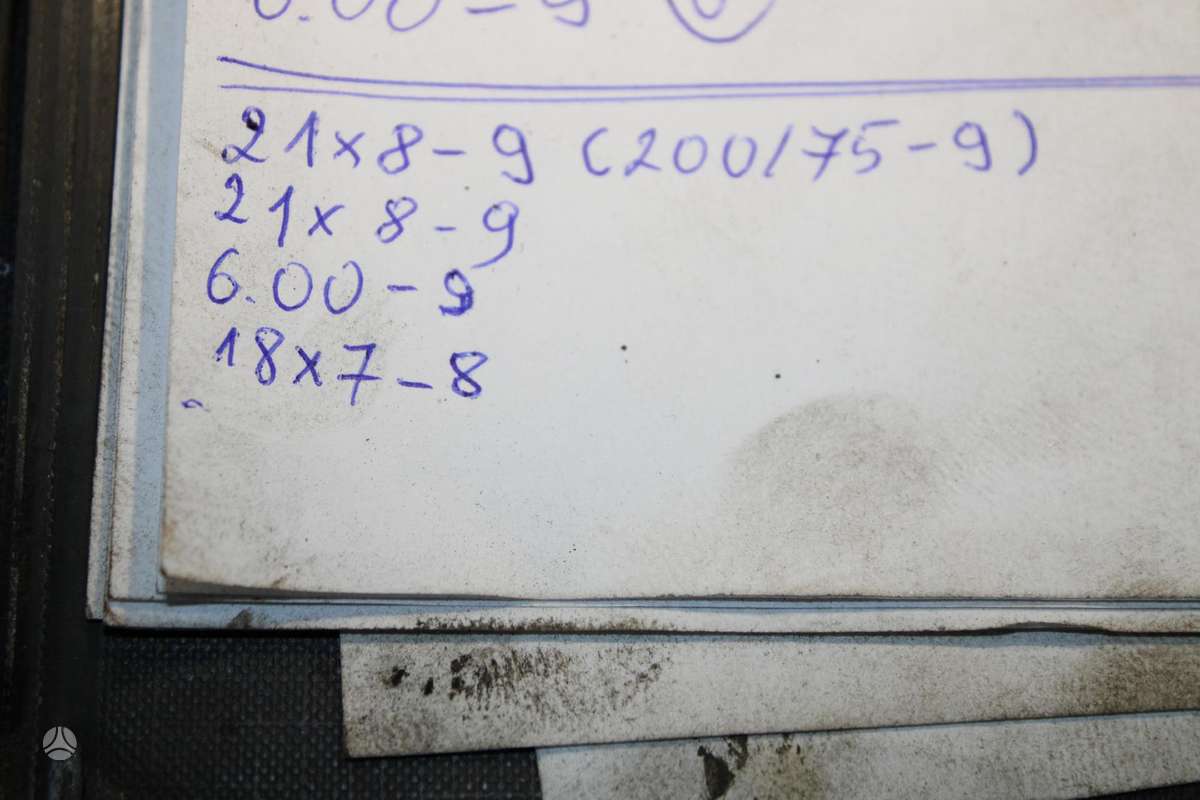 6.00-9
21x8-9 (200/75-9)
21x8-9
6.00-9
18x7-8